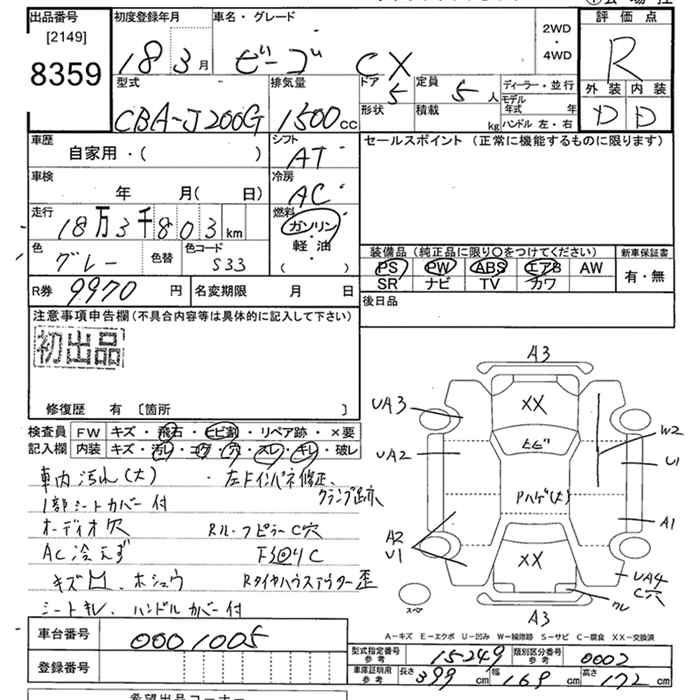 出品番号 初度登録年月 車名・グレード 2WD・4WD 評価点
[2149]
8359
18 3月 ビーゴ CX R
型式 排気量 ドア 5 定員 5人 ディーラー・並行 外装 内装
CBA-J200G 1500cc 形状 積載 kg モデル年式 年 ハンドル 左・右 D D
車歴 シフト セールスポイント (正常に機能するものに限ります)
自家用・( ) AT
車検 冷房
年 月( 日) AC
走行 燃料
18万3千803km ガソリン・軽油・( )
色 グレー 色替 色コード S33
装備品 (純正品に限り○をつけてください) 新車保証書
PS PW ABS エアB AW 有・無
SR ナビ TV カワ
R券 9970円 名変期限 月 日 後日品
注意事項申告欄(不具合内容等は具体的に記入して下さい)
初出品
修復歴 有 [箇所 ]
検査員 FW キズ・飛石・ヒビ割・リペア跡・×要
記入欄 内装 キズ・汚れ・コゲ・穴・スレ・キレ・破レ
車内汚れ(大) ・左Fインパネ修正、
クランプ跡亦
1部シートカバー付
オーディオ穴 Rルーフピラー C穴
AC冷えず
キズ凹、ホシュウ Rタイヤハウスアウター歪
シートキレ、ハンドルカバー付
A3
UA3
XX
W2
UA2
ヒビ
U1
Pハゲ(大)
A2
U1
A1
XX
UA4
C穴
スペマ
クレ
A3
A−キズ E−エクボ U−凹み W−補修跡 S−サビ C−腐食 XX−交換済
車台番号 0001005
型式指定番号 参考 15249 類別区分番号 参考 0002
登録番号 車庫証明用 参考 長さ 399cm 幅 169cm 高さ 172cm
希望出品コーナー